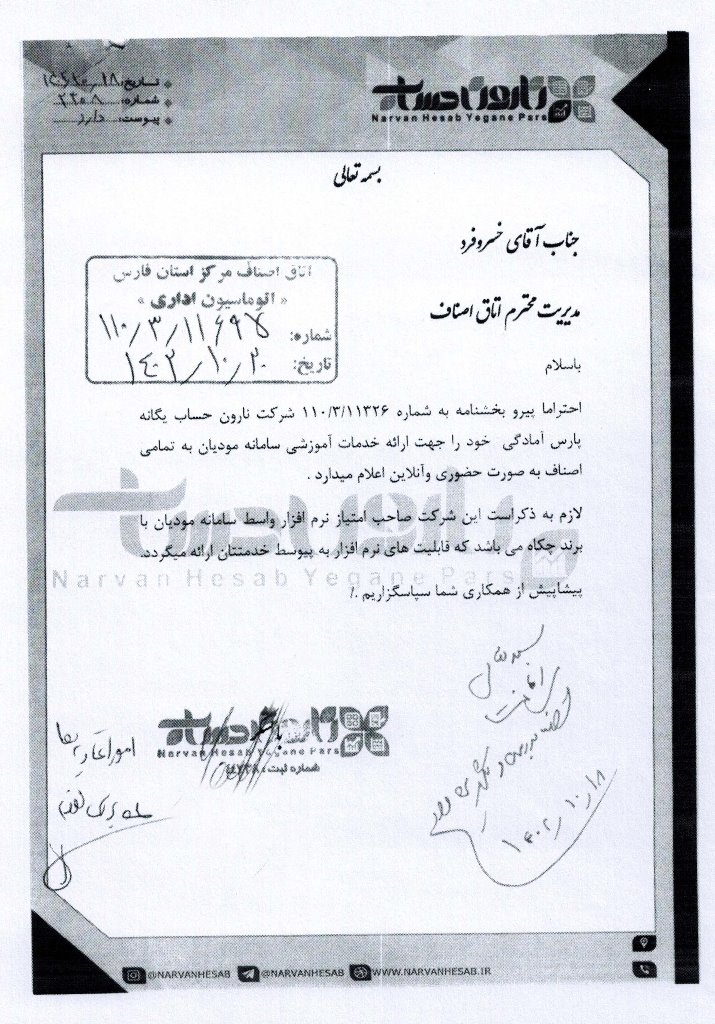 نارون حساب
Narvan Hesab Yegane Pars
تاریخ:
شماره: ۲۲۰۸
پیوست: دارد
بسمه تعالی
جناب آقای خسروفرد
مدیریت محترم اتاق اصناف
اتاق اصناف مرکز استان فارس
« اتوماسیون اداری »
شماره: ۱۱۰/۳/۱۱۶۹۷
تاریخ: ۱۴۰۲/۱۰/۲۰
باسلام
احتراما پیرو بخشنامه به شماره ۱۱۰/۳/۱۱۳۲۶ شرکت نارون حساب یگانه
پارس آمادگی خود را جهت ارائه خدمات آموزشی سامانه مودیان به تمامی
اصناف به صورت حضوری وآنلاین اعلام میدارد .
لازم به ذکراست این شرکت صاحب امتیاز نرم افزار واسط سامانه مودیان با
برند چکاه می باشد که قابلیت های نرم افزار به پیوسط خدمتتان ارائه میگردد.
پیشاپیش از همکاری شما سپاسگزاریم ./
نارون حساب
Narvan Hesab Yegane Pars
نارون حساب
Narvan Hesab Yegane Pars
شماره ثبت:
۱۴۰۲/۱۰/۱۸
امور
@NARVANHESAB
@NARVANHESAB
WWW.NARVANHESAB.IR